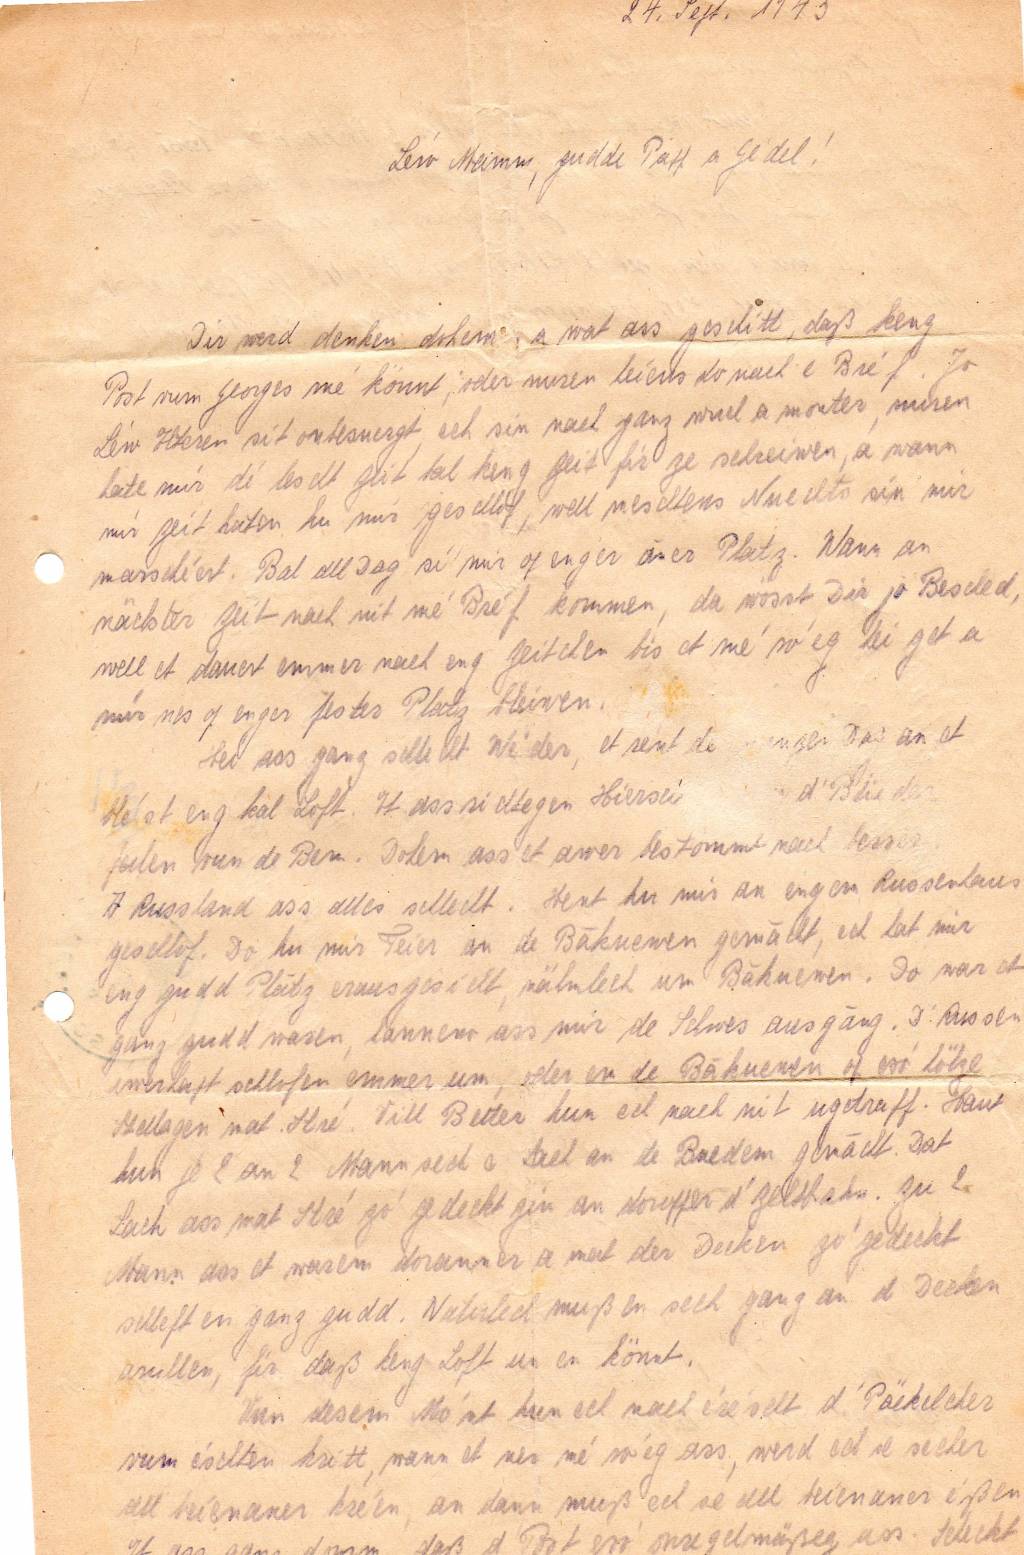 24. Sept. 1943
Léiw Mamm, gudde Papp a Gédel!
Dir werd denken dohem, a wat ass geschitt, daß keng
Post vum Georges mé könnt, oder nuren héiens do nach e Bréf. Jo
Léiw Elteren sit onbesuergt, ech sin nach ganz wuel a monter, nuren
hate mir dé lescht Zeit bal keng Zeit fir ze schreiwen, a wann
mir Zeit haten hu mir geschlof, well meschtens Nuechts sin mir
marschéert. Bal all Dag si mir op enger aner Platz. Wann an
nächster Zeit nach nit mé Bréf kommen, da wösst Dir jo Bescheed,
well et dauert emmer nach eng Zeitchen bis et mé ro'eg hei get a
mir nes op enger fester Platz bleiwen.
Hei ass ganz schlecht Wéder, et rent de ganzen Dag an et
bléist eng kal Loft. Et ass richtegen Hierscht d'Blieder
falen vun de Bem. Dohem ass et awer bestommt nach besser.
A Russland ass alles schlecht. Hent hu mir an engem Russenhaus
geschlof. Do hu mir Feier an de Bäkuewen gemächt, ech hat mir
eng gudd Plätz erausgesicht, nämlech um Bäkuewen. Do war et
ganz gudd waren, lanneno ass mir de Schwes ausgäng. D'Russen
iwerhapt schlofen emmer um, oder en de Bäkuewen op esó hölze
Stellagen mat Stré. Vill Better hun ech nach nit ugetraff. Haut
hun je 2 an 2 Mann sech e Lach an de Buedem gemächt. Dat
Lach ass mat Stré zó gedeckt gin an doruffer d'Zeltbahn. Zu 2
Mann ass et warem dorunner a mat der Decken zó gedeckt
schleft en ganz gudd. Natirlech muß en sech ganz an d Decken
arullen, fir daß keng Loft un en könnt.
Vun desem Mo'nt hun ech nach d'Päckelcher
vum éischten kritt, wann et nes mé ro'eg ass, werd ech se secher
all beienaner kréen, an dann muß ech se all beienaner ießen
Et ass ganz domm, daß d'Post esó onregelmäßeg ass. Schreckt